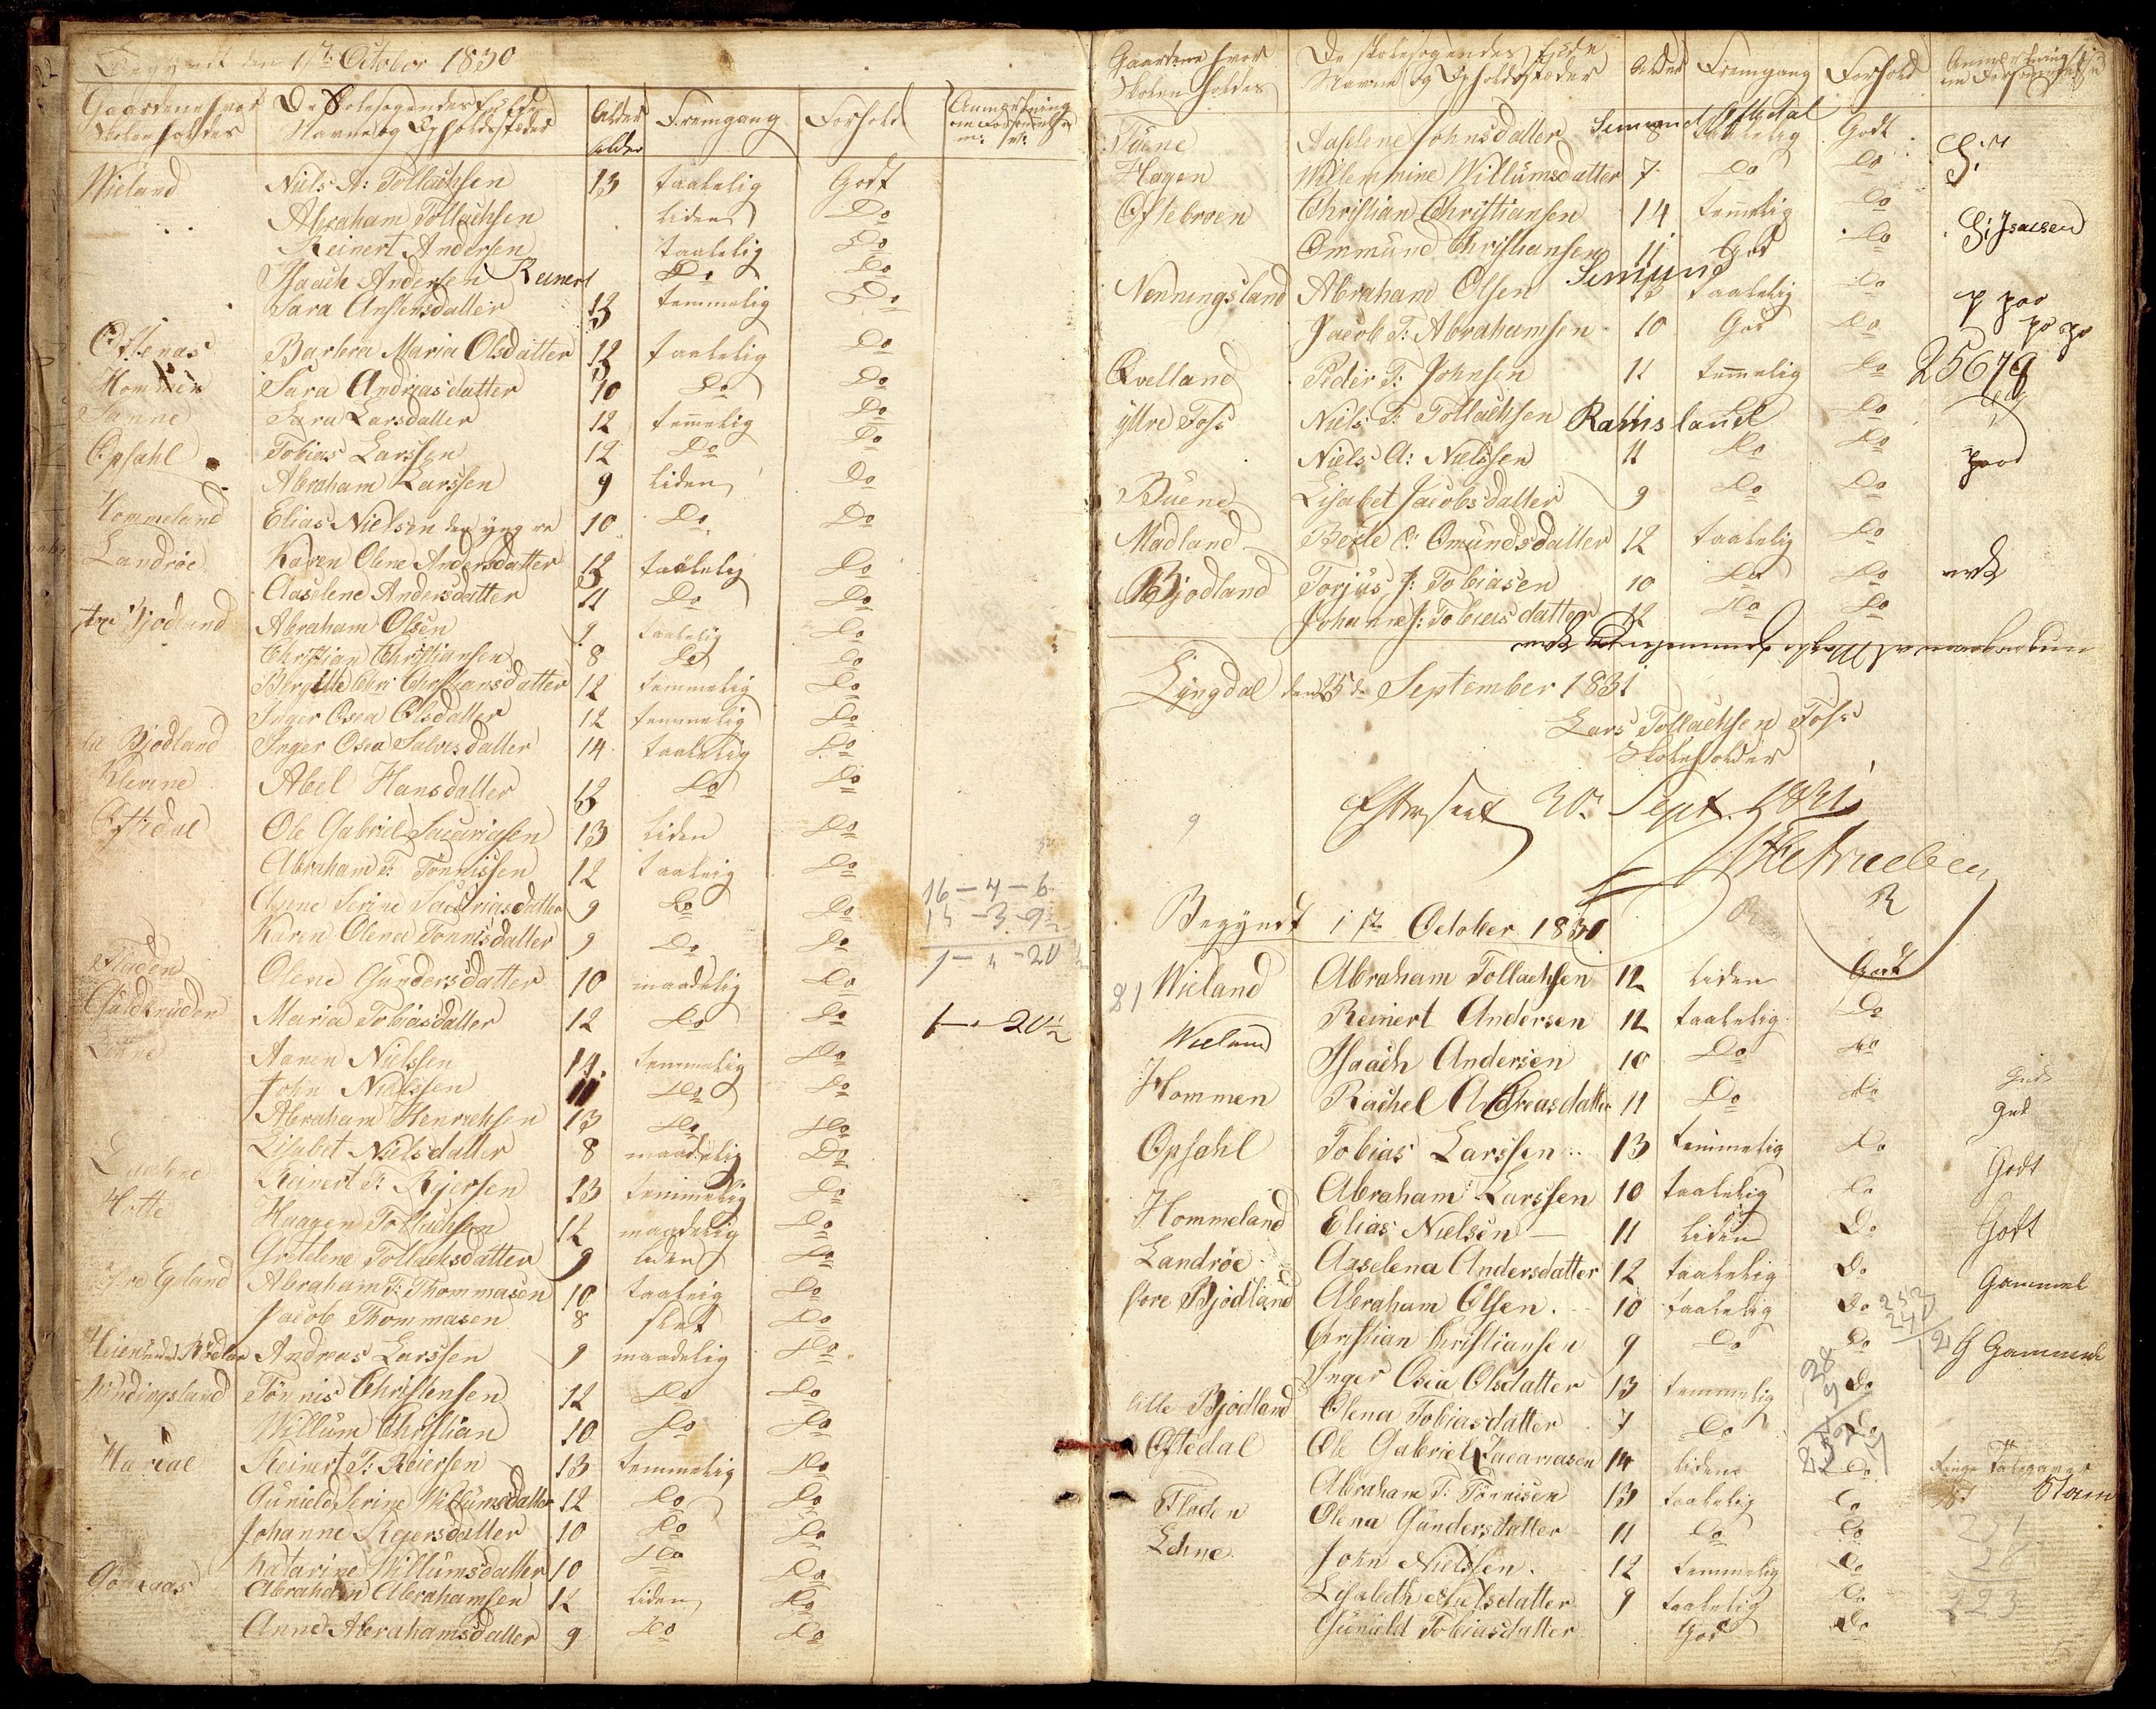 Begyndt den 1ste October 1830
Gaardene hvor Skolen holdes | De Skolesøgendes fulde Navne og Opholdssteder | Alder | Fremgang | Forhold | Anmærkning om Forsømmelser
alder
Wieland Niels A: Tollachsen 13 taalelig Godt
Abraham Tollachsen liden Do
Reinert Andersen taalelig Do
Isaach Andersen Reinert Do Do
Sara Anstensdatter 13 temmelig Do
Oftenæs Barbra Maria Olsdatter 12 taalelig Do
Hommen Sara Andriasdatter 10 Do Do
Sara Larsdatter 12 temmelig Do
Opsahl Tobias Larssen 12 Do Do
Abraham Larssen 9 liden Do
Hommeland Elias Nielsen den yngre 10 Do Do
Landrøe Karen Olene Andersdatter 12 taalelig Do
Aaselene Andersdatter 11 Do Do
Bjodland Abraham Olsen 9 taalelig Do
Christian Christiansen 8 Do Do
Christiansdatter 12 temmelig Do
Inger Osea Olsdatter 12 temmelig Do
Bjodland Inger Osea Salvesdatter 14 taalelig Do
Klevene Abel Hansdatter 12 Do Do
Oftedal Ole Gabriel Sacariasen 13 liden Do
Abraham T: Tønnissen 12 taalelig Do
Serine Sacariasdatter 9 Do Do
Karen Olena Tønnisdatter 9 Do Do
Fladen Olene Gundersdatter 10 maadelig Do
Maria Tobiasdatter 12 Do Do
Aanen Nielssen 14 temmelig Do
John Nielssen 11 Do Do
Abraham Henrichsen 13 Do Do
Lisabet Nielsdatter 8 maadelig Do
Reinert T: Rejersen 13 temmelig Do
Hotte Haagen Tollachsen 12 maadelig Do
Gritelene Tollachsdatter 9 liden Do
Egeland Abraham T: Thommasen 10 taalelig Do
Jacob Thommasen 8 slet Do
Andreas Larssen 9 maadelig Do
Nindingsland Tønnis Christensen 12 Do Do
Willum Christian 10 Do Do
Reinert T: Reiersen 13 temmelig Do
Gunild Serine Willumsdatter 12 Do Do
Johanne Rejersdatter 10 Do Do
Katarine Willumsdatter 10 Do Do
Abraham Abrahamsen 12 liden Do
Anne Abrahamsdatter 9 Do Do
16 – 4 – 6
1 – 20½
Gaardene hvor Skolen holdes | De Skolesøgendes fulde Navne og Opholdssteder | Alder | Fremgang | Forhold | Anmærkning om Forsømmelse
Aaselene Johnsdatter Simund Oftedal 8 taalelig Godt
Hagen Willemine Willumsdatter 7 Do Do
Oftebroen Christian Christiansen 14 temmelig Do
Ommund Christiansen 11 God Do Isacsen
Nenningsland Abraham Olsen Simund 13 taalelig Do
Jacob T: Abrahamsen 10 God Do
Qvelland Peder T: Johnsen 11 temmelig Do 25679
ÿttre Foss Niels T: Tollachsen Ramsland Do Do
Niels A: Nielssen 11 Do Do
Buene Lisabet Jacobsdatter 9 Do Do
Madland Berte O: Omundsdatter 12 taalelig Do
Bjodland Torjus J: Tobiasen 10 Do Do
Johanne J: Tobiasdatter 12 Do Do
Lyngdal den 25de September 1831
Lars Tollachsen Foss
Skoleholder
Efterseet 30. Sept. 1831
R
Begyndt 1ste October 1830
Wieland Abraham Tollachsen 12 liden Godt
Reinert Andersen 12 taalelig Do
Wieland Isaach Andersen 10 Do Do
Hommen Rachel Andreasdatter 11 Do Do
Opsahl Tobias Larssen 13 temmelig Do Godt
Abraham Larssen 10 taalelig Do
Hommeland Elias Nielsen 11 liden Do Godt
Landrøe Aaselena Andersdatter 12 taalelig Do
Store Bjodland Abraham Olsen 10 taalelig Do Gammel
Christian Christiansen 9 Do Do G Gammel
Inger Osea Olsdatter 13 temmelig Do
lille Bjodland Olena Tobiasdatter 7 Do Do
Oftedal Ole Gabriel Zacariasen 14 liden Do
Abraham T: Tønnisen 13 taalelig Do
Fladen Olena Gundersdatter 11 Do Do
Lehne John Nielssen 12 temmelig Do
Lisabeth Nielsdatter 9 taalelig Do
Gunild Tobiasdatter God Do
223